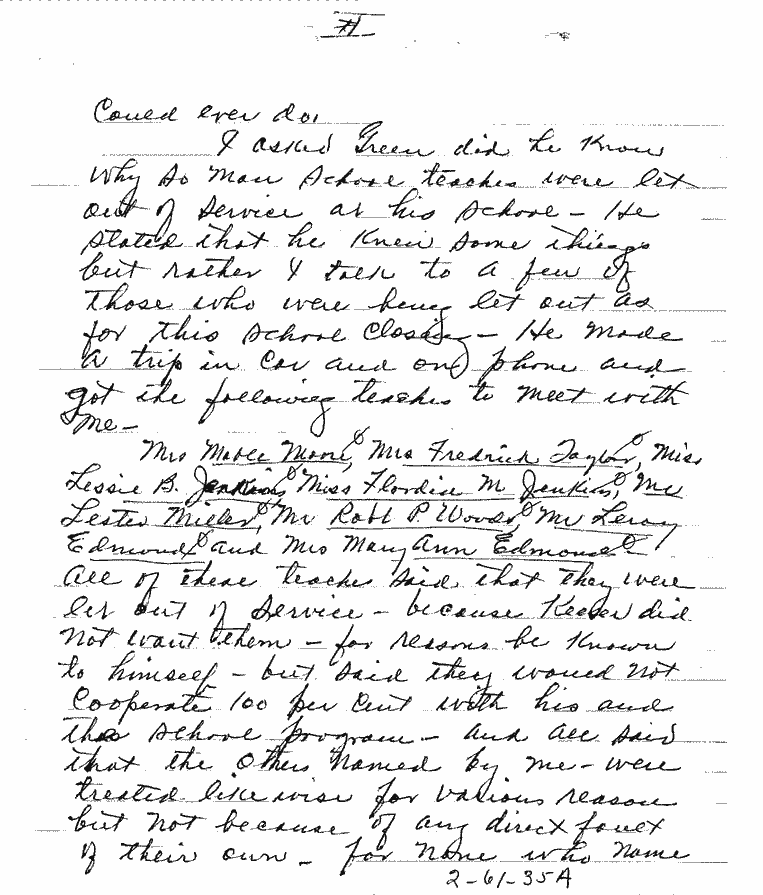 II
Coued ever do.
I asked Green did he know
why so man schooe teaches were let
out of service at his schooe - He
stated that he knew some things
but rather I talk to a few of
those who were being let out as
for this schooe closing - He made
a trip in car and on phone and
got the following teaches to meet with
me -
Mrs Mabee Moore, Mrs Fredrick Taylor, Miss
Lessie B. Jenkins, Miss Flordia M Jenkins, Mr
Lester Miller, Mr Robt P. Woods, Mr Leroy
Edmonds and Mrs Mary Ann Edmonds
all of these teaches said that they were
let out of service - because Keeler did
not want them - for reasons be known
to himself - but said they woued not
Cooperate 100 per cent with his and
the schooe program - and all said
that the others named by me - were
treated likewise for various reason
but not because of any direct fauet
of their own - for none who name
2-61-35A